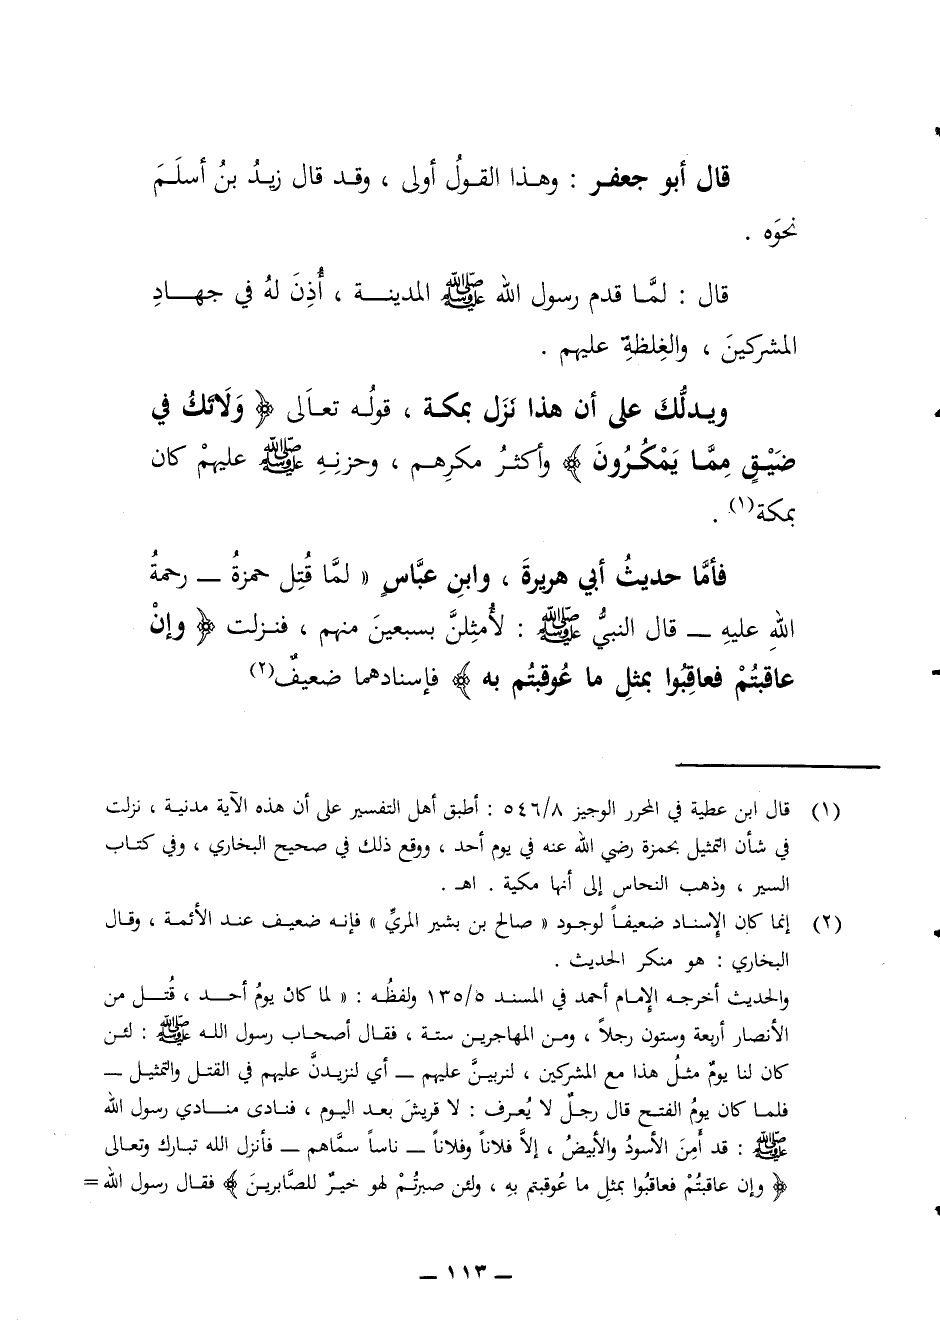 قال أبو جعفر : وهـذا القولُ أولى ، وقـد قال زيـدُ بنُ أسلَـمَ
نحوَه .
قال : لمَّـا قدم رسول الله ﷺ المدينـة ، أُذِنَ لهُ في جهـادِ
المشركينَ ، والغِلظةِ عليهم .
ويـدلُّكَ على أن هذا نَزَل بمكـة ، قولُـه تعـالَى ﴿ وَلَاتَكُ في
ضَيْـقٍ مِمَّـا يَمْكُـرُونَ ﴾ وأكثـرُ مكرِهـم ، وحزنِـهِ ﷺ عليهمْ كان
بمكة(١) .
فأمَّا حديثُ أبي هريرةَ ، وابنِ عبَّاسٍ « لمَّا قُتِل حمزةُ ــ رحمةُ
اللهِ عليهِ ــ قال النبيُّ ﷺ : لأُمثِلنَّ بسبعينَ منهم ، فنـزلت ﴿ وإنْ
عاقبتُمْ فعاقِبُوا بمثلِ ما عُوقبتُم به ﴾ فإسنادهما ضعيفٌ(٢)
(١) قال ابن عطية في المحرر الوجيز ٥٤٦/٨ : أطبق أهل التفسير على أن هذه الآية مدنية ، نزلت
في شأن التمثيل بحمزة رضي الله عنه في يوم أحد ، ووقع ذلك في صحيح البخاري ، وفي كتاب
السير ، وذهب النحاس إلى أنها مكية . اهـ .
(٢) إنما كان الإسناد ضعيفـاً لوجود « صالح بن بشير المريِّ » فإنه ضعيـف عنـد الأئمـة ، وقـال
البخاري : هو منكر الحديث .
والحديث أخرجه الإمام أحمد في المسند ١٣٥/٥ ولفظُه : « لما كان يومُ أحـد ، قُتـل من
الأنصار أربعة وستون رجلاً ، ومـن المهاجريـن ستـة ، فقـال أصحـاب رسول اللـه ﷺ : لئـن
كان لنا يومٌ مثلُ هذا مع المشركين ، لنربينَّ عليهم ــ أي لنزيدنَّ عليهم في القتل والتمثيل ــ
فلمـا كان يومُ الفتـح قال رجـلٌ لا يُعـرف : لا قريشَ بعـد اليـوم ، فنـادى منـادي رسول الله
ﷺ : قد أمِنَ الأسودُ والأبيضُ ، إلاَّ فلاناً وفلاناً ــ ناساً سمَّاهم ــ فأنزل الله تبارك وتعالى
﴿ وإن عاقبتُمْ فعاقبُوا بمثلِ ما عُوقبتم بهِ ، ولئن صبرتُمْ لهو خيرٌ للصَّابرينَ ﴾ فقـال رسول الله =
ــ ١١٣ ــ